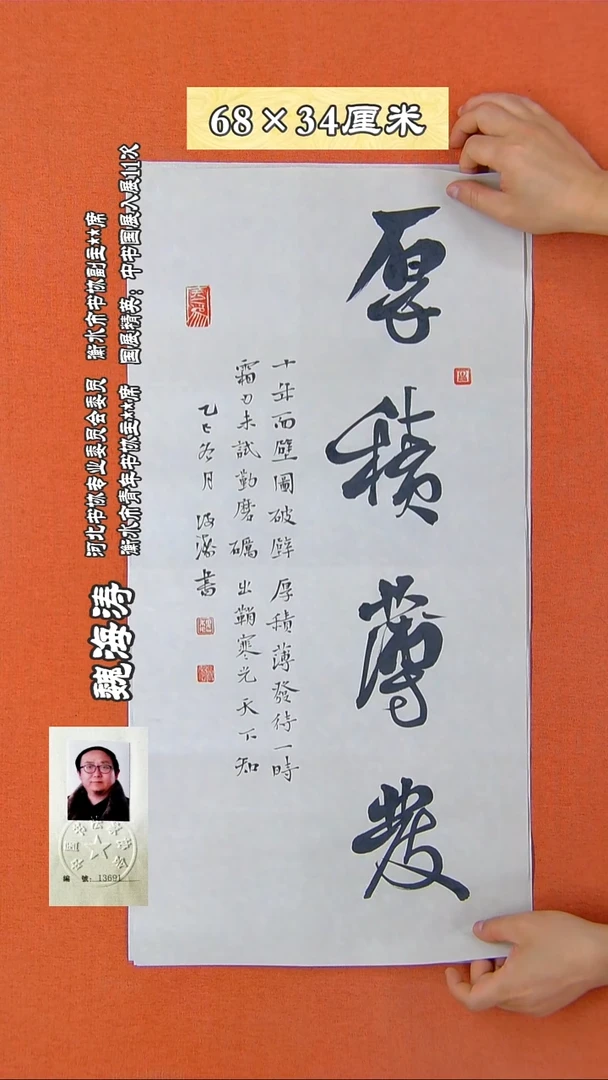 68×34厘米
厚積薄發
十年面壁圖破壁 厚積薄發待一時
霜刃未試勤磨礪 出鞘寒光天下知
乙巳冬月 海濤書
河北书协专业委员会委员 衡水市书协副主**席
衡水市青年书协主**席 国展精英：中书国展入展11次
魏海涛
編 號：13691